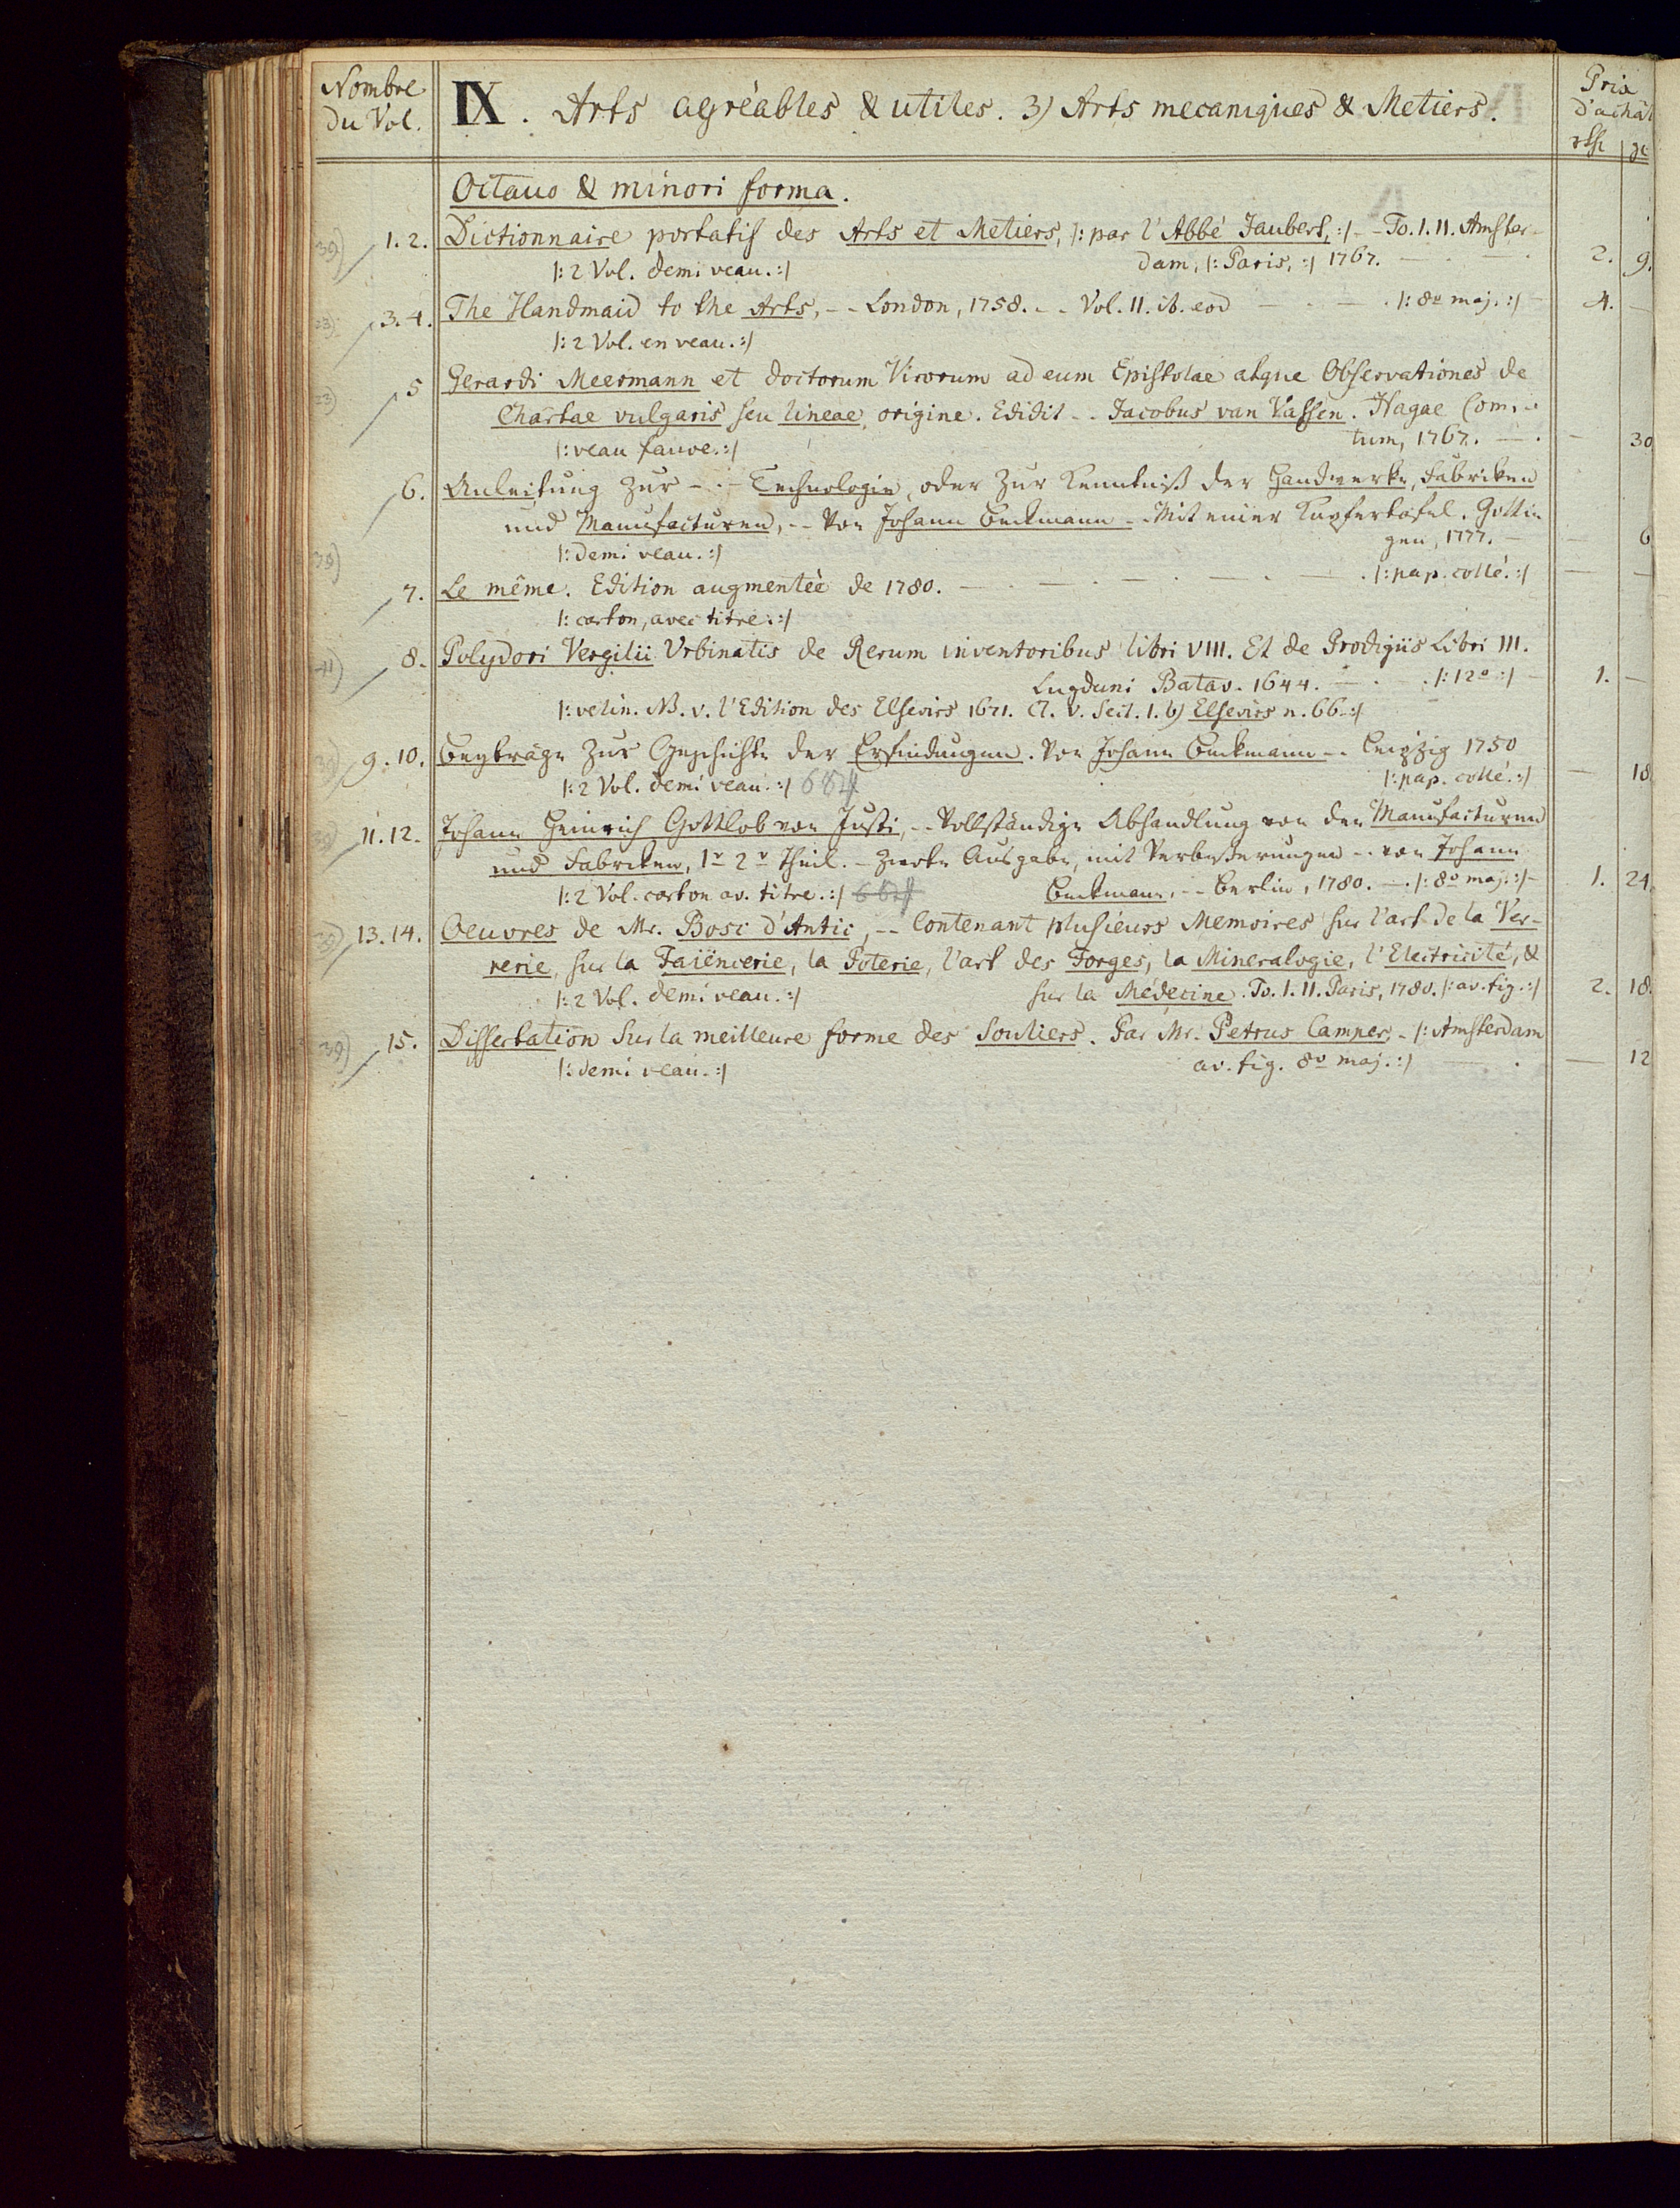 Nombre
du Vol.
IX. Arts agréables & utiles. 3) Arts mecaniques & Metiers.
Prix
d'achât
rth gr
Octavo & minori forma.
39) 1. 2. Dictionnaire portatif des Arts et Metiers, |: par l'Abbé Jaubert, :| - - To. I. II. Amster-
dam, |: Paris, :| 1767. 2. 9.
|: 2 Vol. demi veau. :|
23) 3. 4. The Handmaid to the Arts, - - London, 1758. - - Vol. II. ib. eod |: 8º maj. :| 4. —
|: 2 Vol. en veau. :|
23) 5 Gerardi Meermann et doctorum Virorum ad eum Epistolae atque Observationes de
Chartae vulgaris seu lineae, origine. Edidit - - Jacobus van Vassen. Hagae Com.
tum, 1767. — 30
|: veau fauve. :|
6. Anleitung zur - - Technologie, oder zur Kenntniß der Handwerke, Fabriken
und Manufacturen, - - Von Johann Beckmann - - Mit einer Kupfertafel. Gottin
gen, 1777. — 6
|: demi veau. :|
39)
7. Le même. Edition augmentée de 1780. |: pap. collé. :| — —
|: carton, avec titre. :|
41) 8. Polydori Vergilii Urbinatis de Rerum inventoribus libri VIII. Et de Prodigiis Libri III.
Lugduni Batav. 1644. |: 12º :| 1. —
|: velin. NB. v. l'Edition des Elsevirs 1671. Cl. V. Sect. 1. b) Elsevirs n. 66. :|
39) 9. 10. Beyträge zur Geschichte der Erfindungen. Von Johann Beckmann - - Leipzig 1750
|: 2 Vol. demi veau. :| 684 |: pap. collé. :| — 18
39) 11. 12. Johann Heinrich Gottlob von Justi, - - Vollständige Abhandlung von den Manufacturen
und Fabriken, 1r 2r Theil. - Zweote Ausgabe, mit Verbeßerungen - - von Johann
Beckmann. - - Berlin, 1780. |: 8º maj. :| 1. 24.
|: 2 Vol. carton av. titre. :| 684
39) 13. 14. Oeuvres de Mr. Bosc d'Antic, - - Contenant plusieurs Memoires sur l'art de la Ver-
rerie, sur la Faïencerie, la Poterie, l'art des Forges, la Mineralogie, l'Electricité, &
sur la Médecine. To. I. II. Paris, 1780. |: av. fig. :| 2. 18.
|: 2 Vol. demi veau. :|
39) 15. Dissertation sur la meilleure forme des Souliers. Par Mr. Petrus Camper, - |: Amsterdam
av. fig. 8º maj. :| — 12
|: demi veau. :|